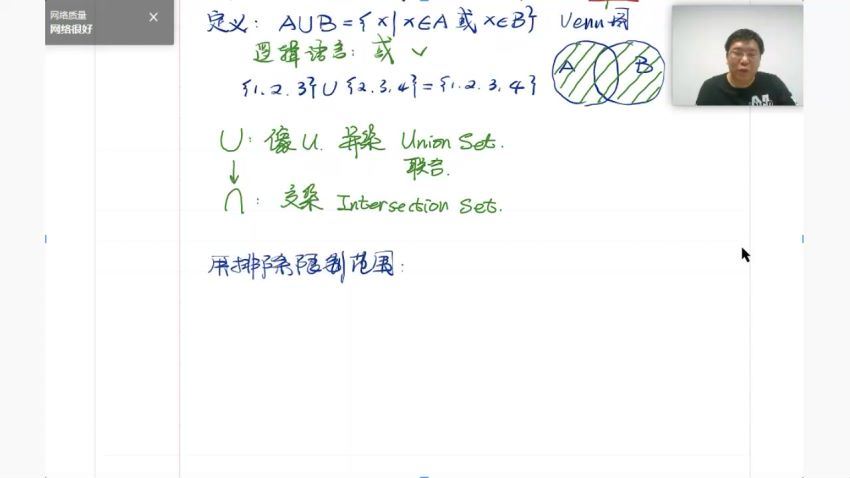 网络质量
网络很好
定义: A∪B={x|x∈A 或 x∈B} Venn图
逻辑语言: 或 ✓
A B
{1.2.3}∪{2.3.4}={1.2.3.4}
∪: 像U. 并集 Union Set.
联合.
↓
∩: 交集 Intersection Set.
用排除限制范围: